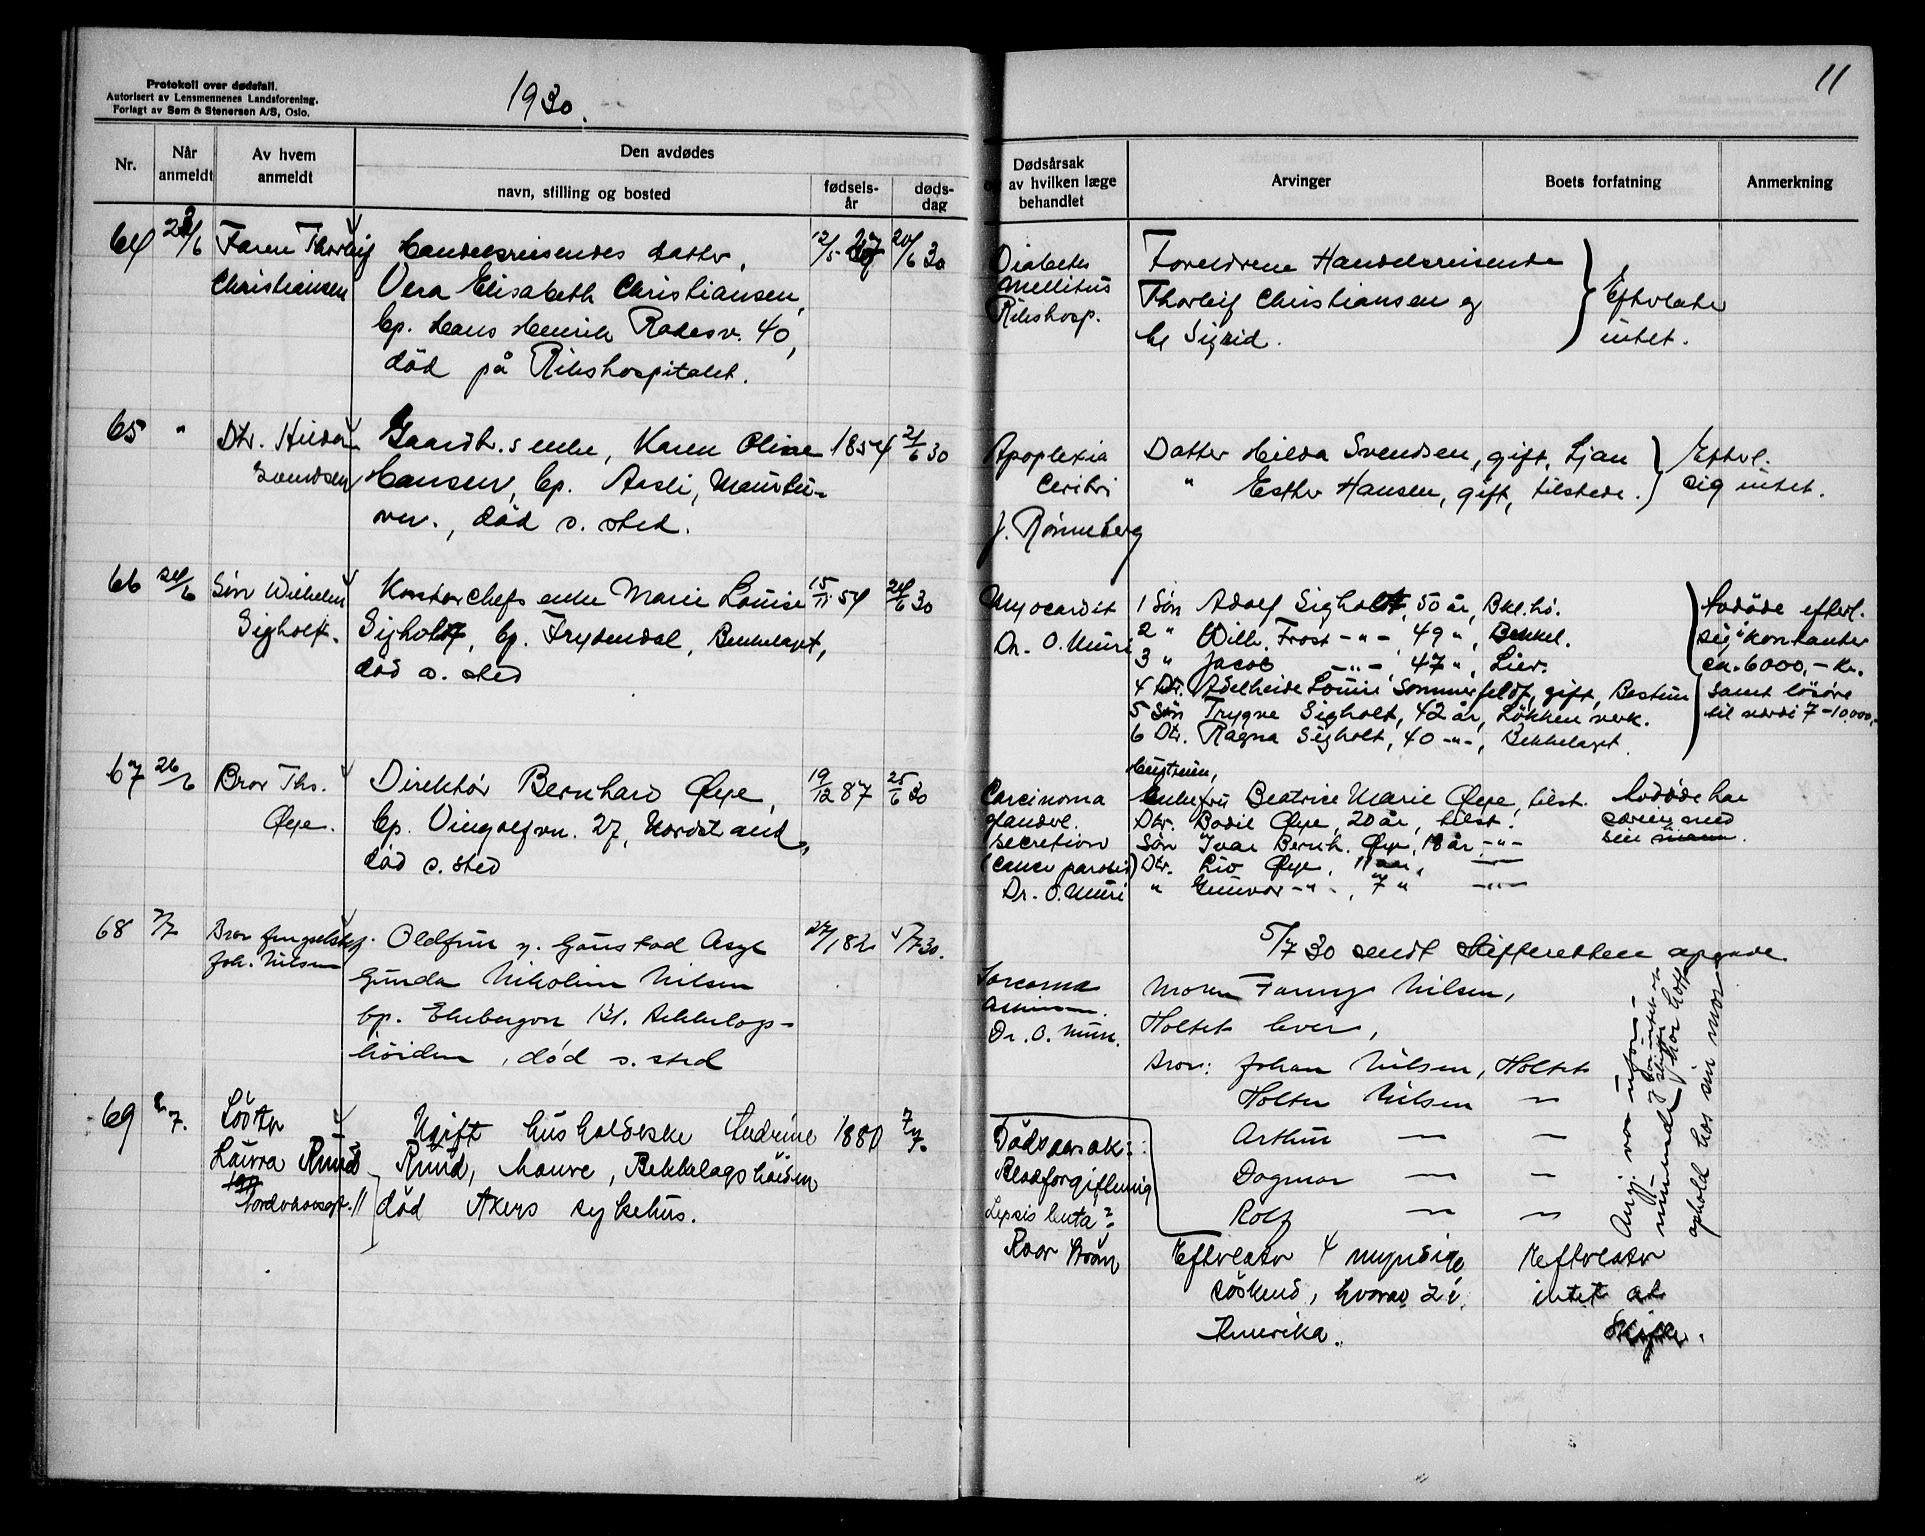 Protokoll over dødsfall.
Autorisert av Lensmennenes Landsforening.
Forlagt av Sem & Stenersen A/S, Oslo.
1930.
Nr.
Når anmeldt
Av hvem anmeldt
Den avdødes
navn, stilling og bosted
fødselsår
dødsdag
64 23/6 Faren Thorleif
Christiansen
Handelsreisendes datter,
Vera Elisabeth Christiansen,
bp. Hans Henrik Rodesv. 40,
död på Rikshospitalet.
12/5 27 20/6 30
65 " Dtr. Hilda
Svendsen
Gaardbr.s enke, Karen Oline
Hansen, bp. Aasli,
död s. sted.
1854 21/6 30
66 24/6 Søn Wilhelm
Sigholt.
Kontorchefs enke Marie Louise
Sigholt, bp. Frydendal, Bekkelaget,
död s. sted
15/11 54 24/6 30
67 26/6 Bror Ths.
Øye.
Direktør Bernhard Øye,
bp. Vingolfvn. 27, Nordstrand,
död s. sted
19/12 87 25/6 30
68 7/7 Bror
Joh. Nilsen
Oldfrue v. Gaustad Asyl
Gunda Nikoline Nilsen
bp. Ekebergvn 131. Bekkelags-
höiden, död s. sted
27/1 82 7 30.
69 7. Söster
Laura Ruud
Ugift husholderske Andrine
Ruud, Hauve, Bekkelagshöiden
död Akers sykehus.
1880 7/7.
11
Dødsårsak
og av hvilken læge
behandlet
Arvinger
Boets forfatning
Anmerkning
Diabetes
mellitus
Rikshosp.
Foreldrene Handelsreisende
Thorleif Christiansen og
Sigrid.
Efterlater
intet.
Apoplexia
Cerebri
J. Rönneberg
Datter Hilda Svendsen, gift, Ljan
" Esther Hansen, gift, tilstede.
Efterl.
sig intet.
Myocardit
Dr. O. Muri
1 Søn Adolf Sigholt, 50 år, Bkl.hö.
2 " Wilh. Frost -"-, 49 ", Bekkel.
3 " Jacob -"-, 47 ", Lier.
4 Dtr. Adelheide Louise Sommerfeldt, gift, Bestum
5 Søn Trygve Sigholt, 42 år, Løkken verk.
6 Dtr. Ragna Sigholt, 40 -"-, Bekkelaget.
Avdöde efterl.
sig i kontanter
ca. 6000,- kr.
samt lösöre
til verdi 7-10.000,-
Carcinoma
glandul.
secretion
(cancer parotis)
Dr. O. Muri
Hustruen,
Enkefru Beatrice Marie Øye, tilst.
Dtr. Bodil Øye, 20 år, tilst.
Søn Ivar Bernh. Øye, 18 år -"-
Dtr. Liv Øye, 11 år, -"-
" Gunvor -"-, 7 " -"-
Avdöde har
særeie med
sin mann.
5/7 30 sendt skifteretten opgave
Sarcoma
Dr. O. Muri.
Moren Fanny Nilsen,
Holtet lever,
Bror: Johan Nilsen, Holtet
Holter Nilsen —
Arthur — —
Dagmar — —
Rolf — —
ophold hos sin mor
Dödsaarsak:
Blodforgiftning
Sepsis lenta?
Roar Ström
Efterlater 4 myndige
söskend, hvorav 2 i
Amerika.
Efterlater
intet at
Skifte.